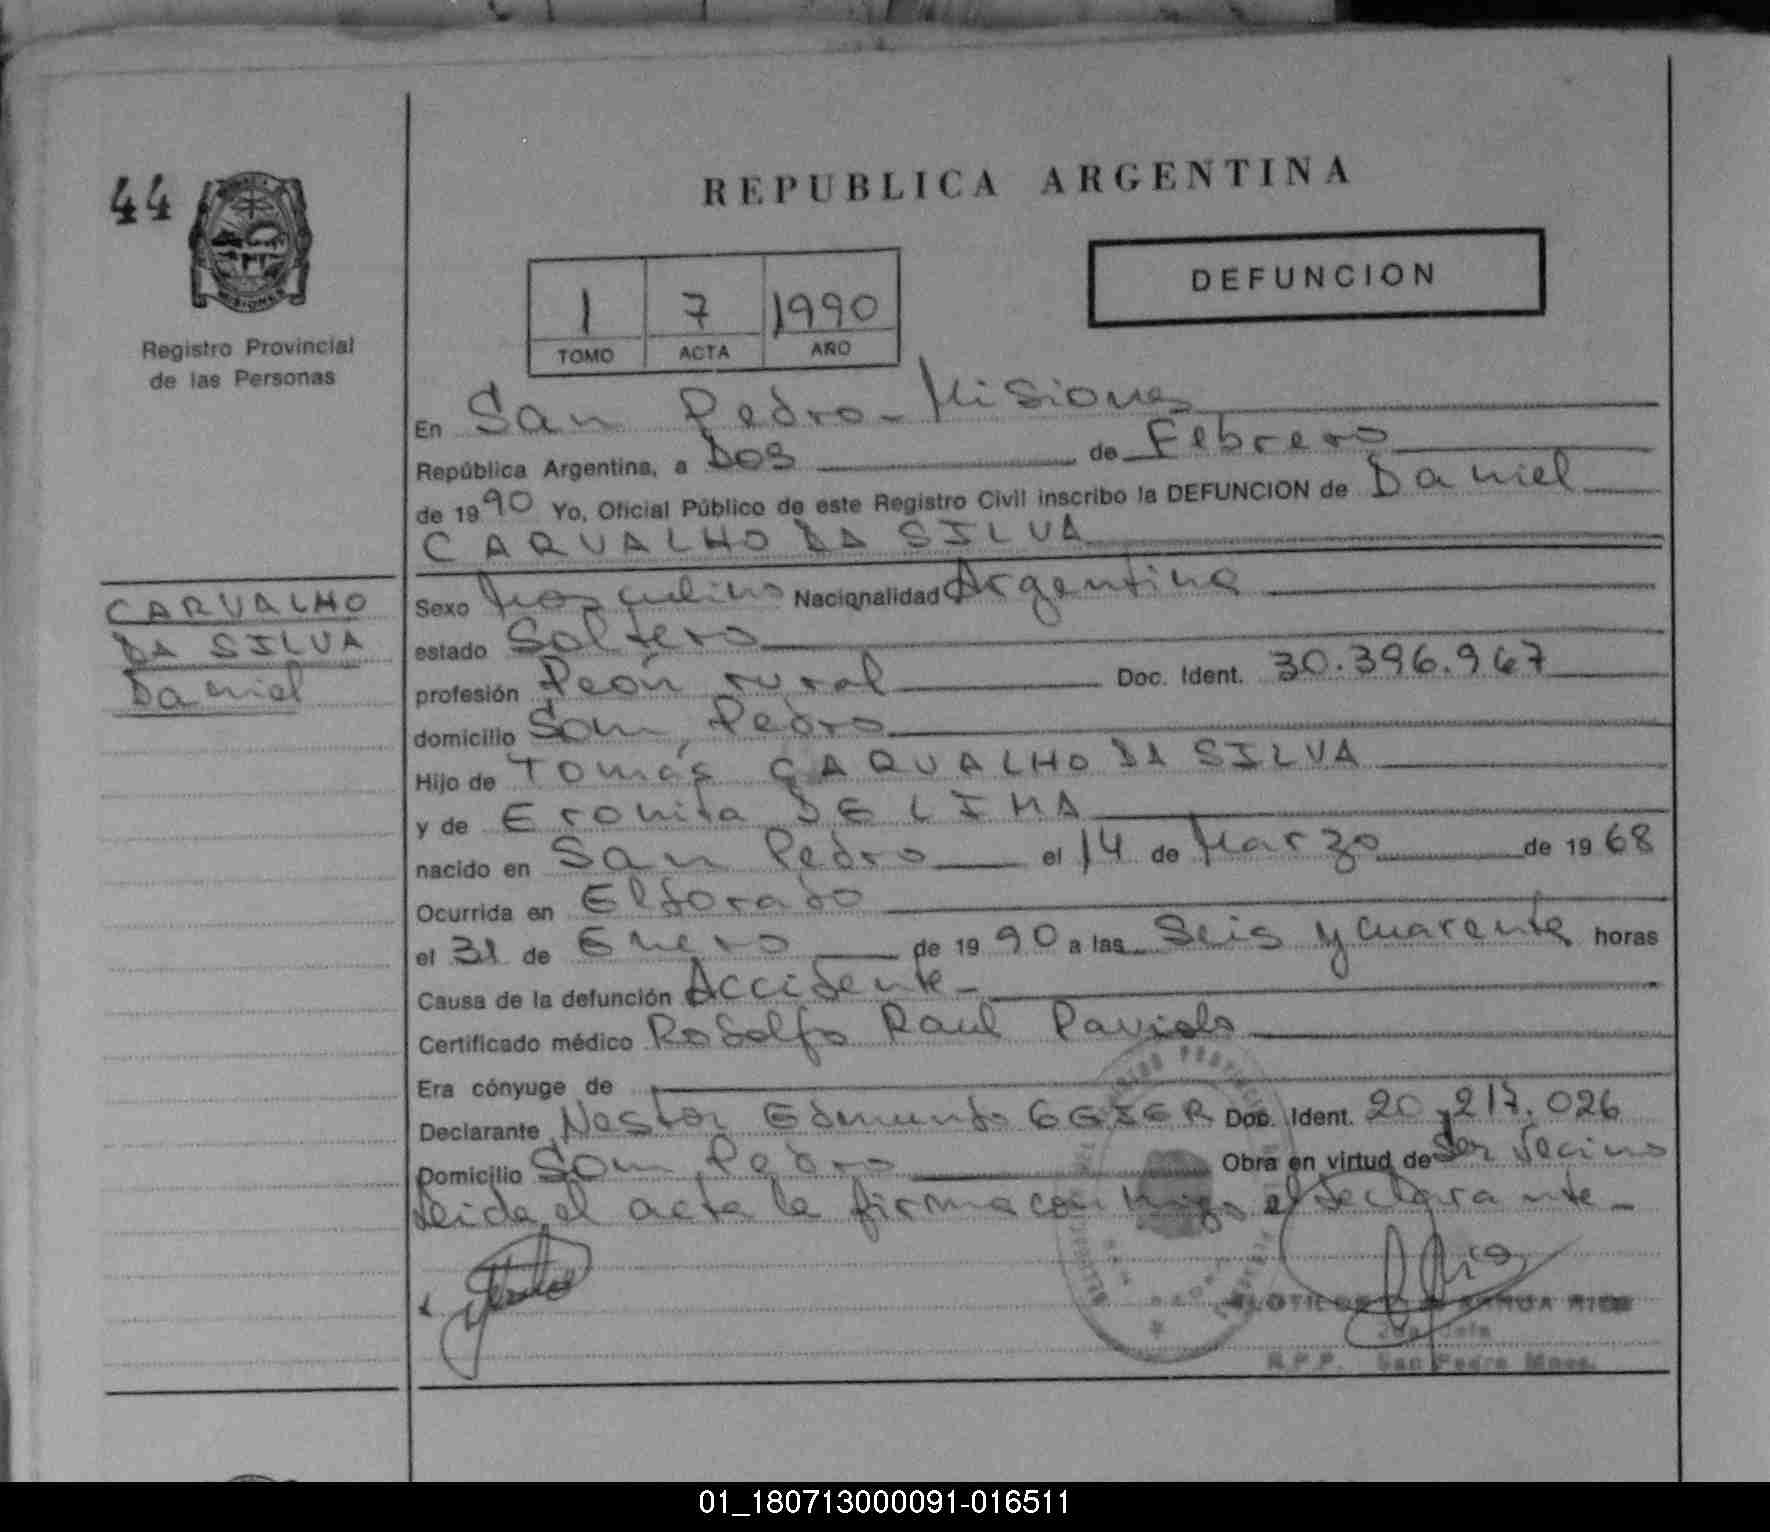 44
REPUBLICA ARGENTINA
DEFUNCION
1 7 1990
TOMO ACTA AÑO
MISIONES
Registro Provincial
de las Personas
En San Pedro - Misiones
República Argentina, a Dos de Febrero
de 1990 Yo, Oficial Público de este Registro Civil inscribo la DEFUNCION de Daniel
CARVALHO DA SILVA
CARVALHO
DA SILVA
Daniel
Sexo Masculino Nacionalidad Argentina
estado Soltero
profesión Peón rural Doc. Ident. 30.396.967
domicilio San Pedro
Hijo de Tomás CARVALHO DA SILVA
y de Eronita DE LIMA
nacido en San Pedro el 14 de Marzo de 1968
Ocurrida en Eldorado
el 31 de Enero de 1990 a las Seis y cuarenta horas
Causa de la defunción Accidente -
Certificado médico Rodolfo Raul
Era cónyuge de
Declarante Nestor Edmundo Doc. Ident. 20.217.026
Domicilio San Pedro Obra en virtud de Ser Vecino
Leida el acta la firma con migo el declarante -
R.P.P. San Pedro Mnes.
01_180713000091-016511